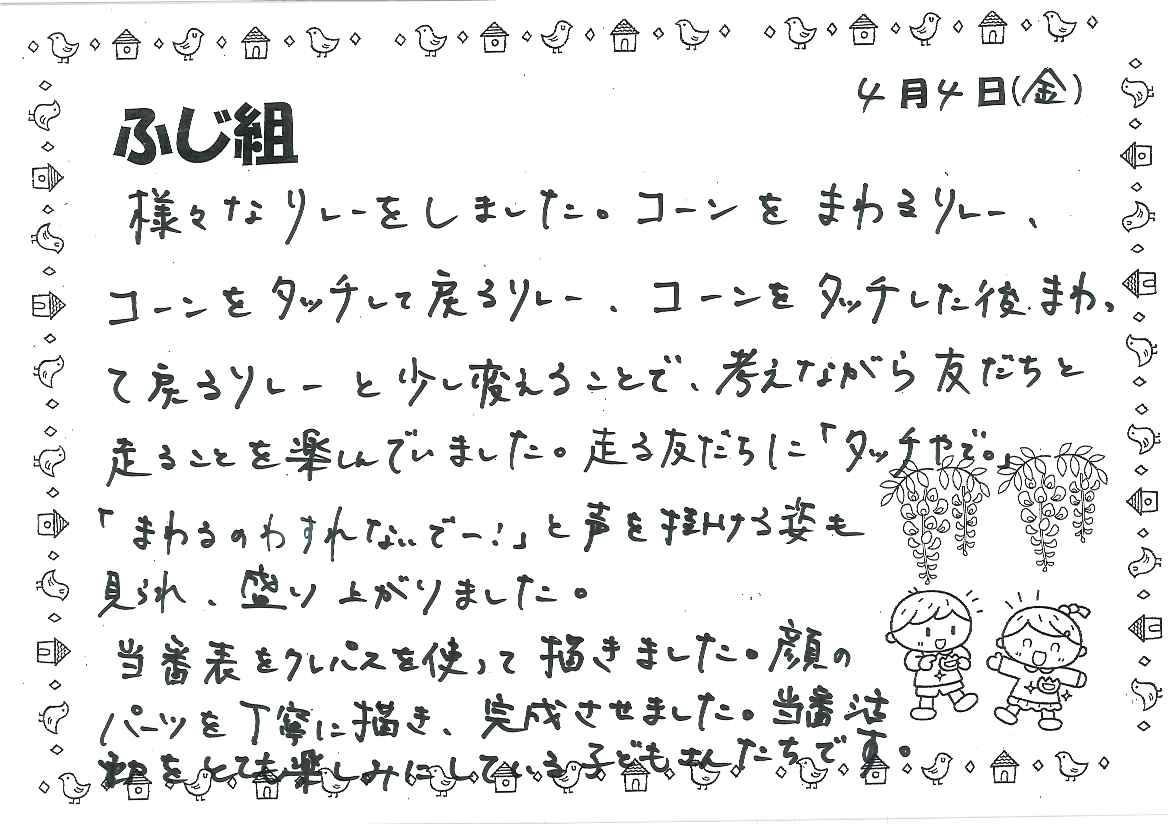 4月4日(金)
ふじ組
様々なリレーをしました。コーンをまわるリレー、
コーンをタッチして戻るリレー、コーンをタッチした後まわっ
て戻るリレーと少し変えることで、考えながら友だちと
走ることを楽しんでいました。走る友だちに「タッチやで。」
「まわるのわすれないでー!」と声を掛ける姿も
見られ、盛り上がりました。
当番表をクレパスを使って描きました。顔の
パーツを丁寧に描き、完成させました。当番活
動をとても楽しみにしている子どもさんたちです。